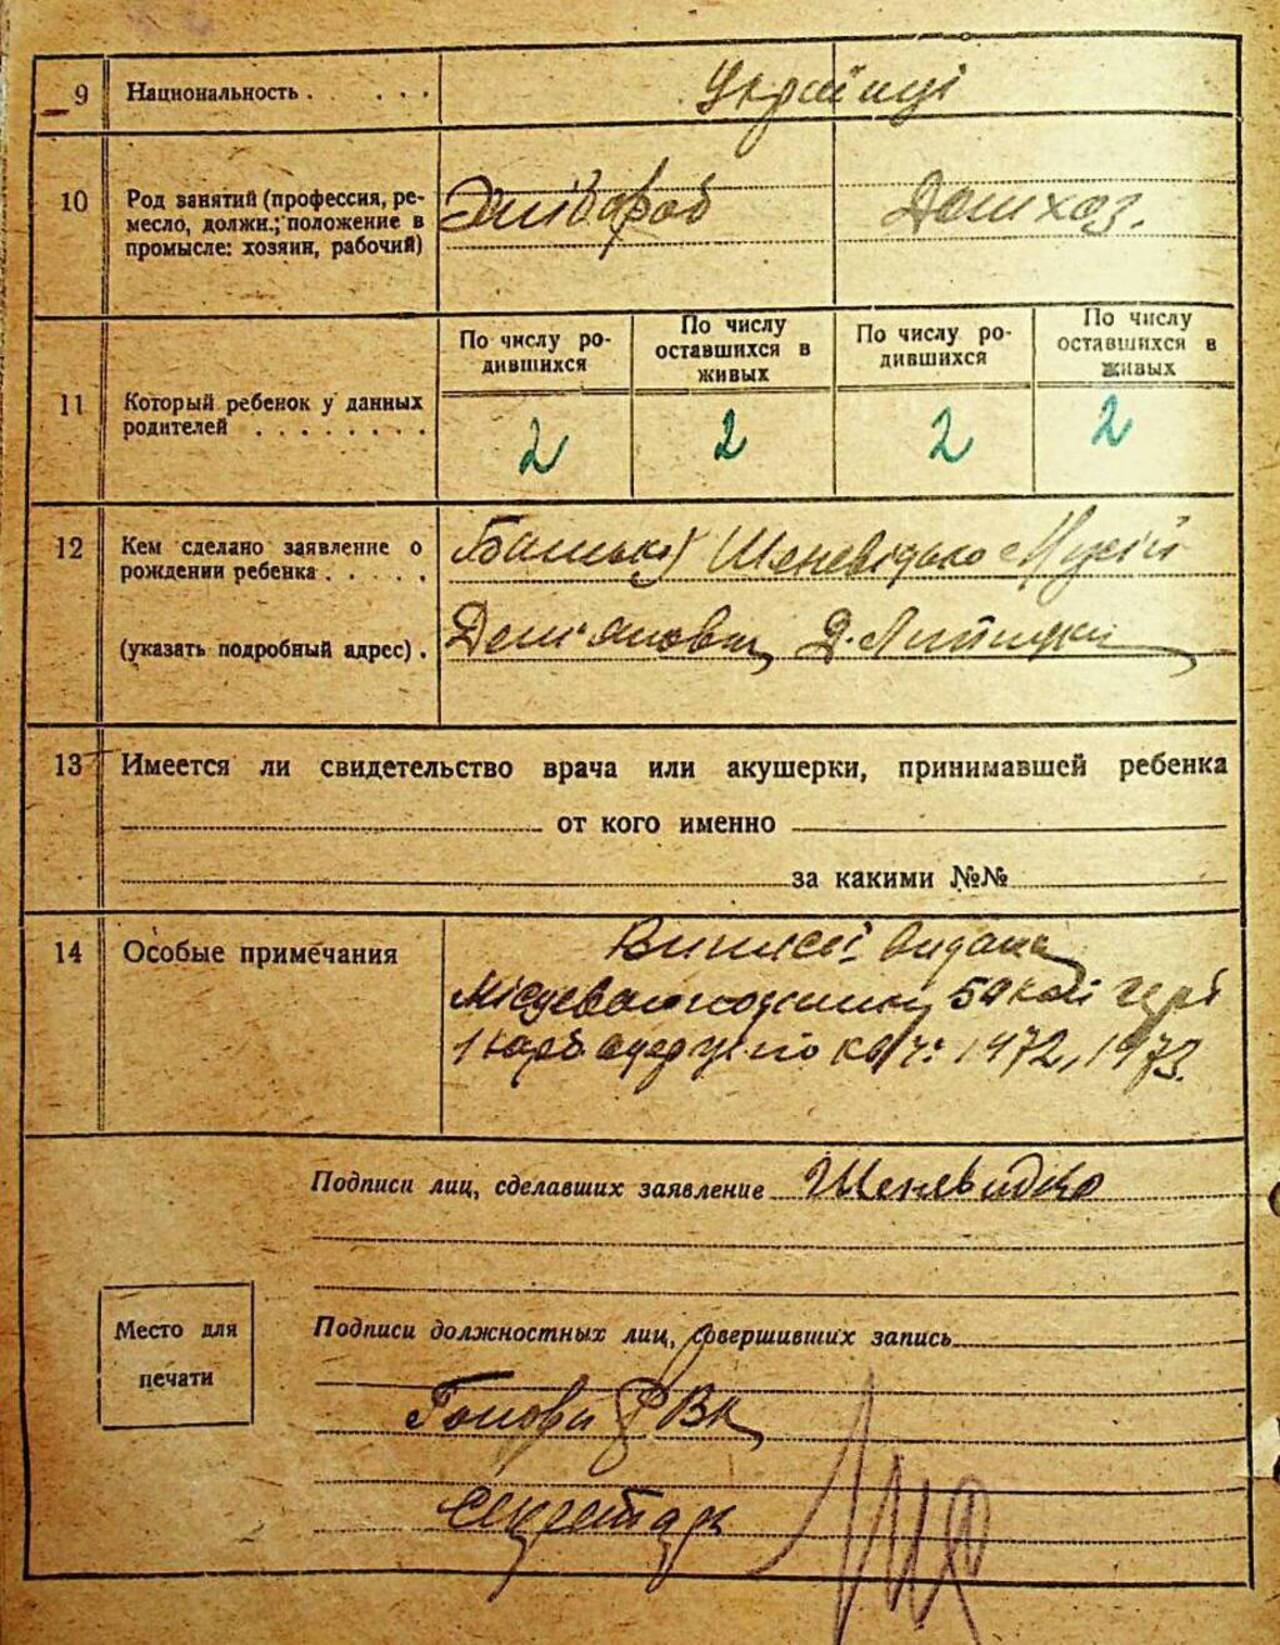 9 Национальность . . . . . Українці
10 Род занятий (профессия, ре-
месло, должн.; положение в
промысле: хозяин, рабочий)
Домхоз.
11 Который ребенок у данных
родителей . . . . . . . .
По числу ро-
дившихся
По числу
оставшихся в
живых
По числу ро-
дившихся
По числу
оставшихся в
живых
2 2 2 2
12 Кем сделано заявление о
рождении ребенка . . . . .
(указать подробный адрес) .
Батько Шеневідько Мусій
Дем'янович,
13 Имеется ли свидетельство врача или акушерки, принимавшей ребенка
от кого именно
за какими №№
14 Особые примечания
видана
50 коп герб
1 карб 1972, 1973.
Подписи лиц, сделавших заявление Шеневидко
Место для
печати
Подписи должностных лиц, совершивших запись
Голова РВК
Секретар